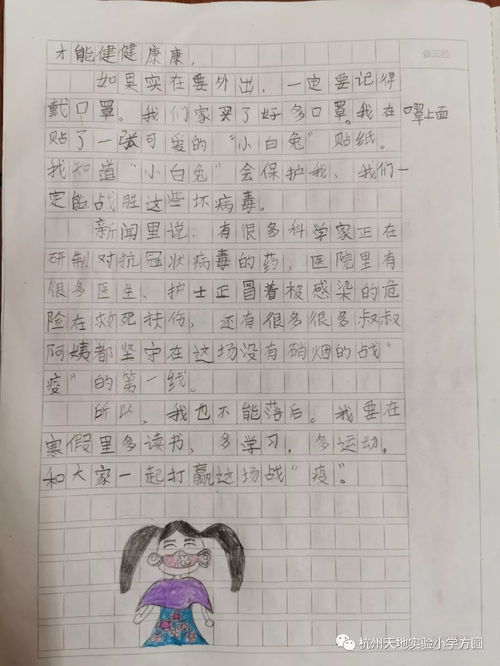 才能健健康康。
如果实在要外出，一定要记得
戴口罩。我们家买了好多口罩。我在口罩上面
贴了一张可爱的“小白兔”贴纸。
我知道“小白兔”会保护我，我们一
定能战胜这些坏病毒。
新闻里说，有很多科学家正在
研制对抗冠状病毒的药，医院里有
很多医生、护士正冒着被感染的危
险在救死扶伤，还有很多很多叔叔
阿姨都坚守在这场没有硝烟的战“
疫”的第一线。
所以，我也不能落后。我要在
寒假里多读书，多学习，多运动，
和大家一起打赢这场战“疫”。
修正栏
杭州天地实验小学方圆